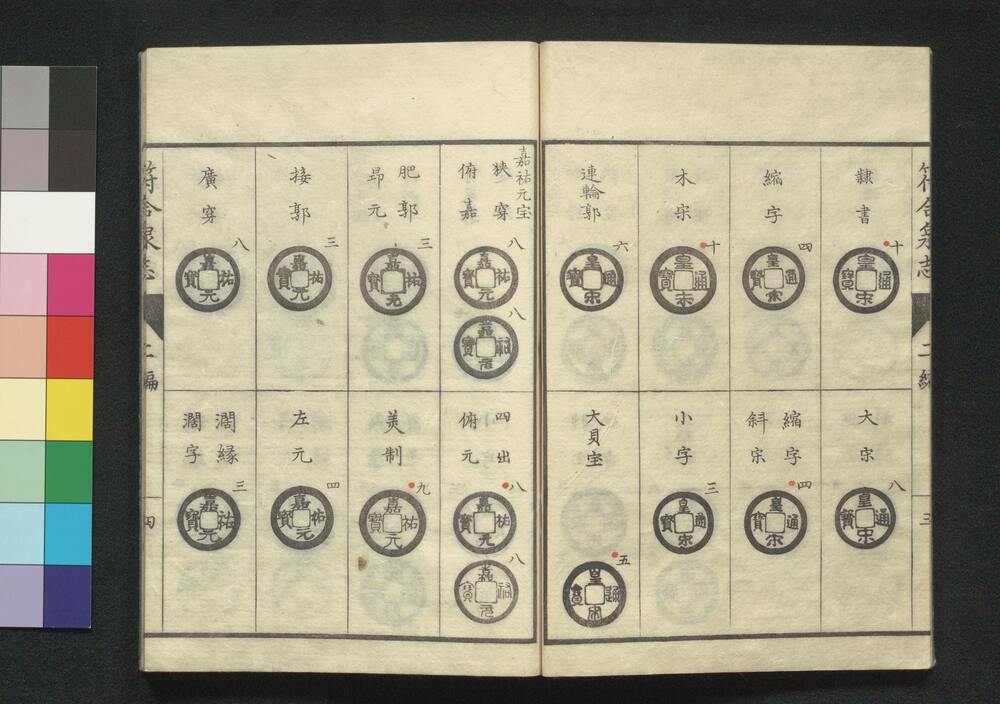 符合泉志
二編
三
隸書
十
皇宋通寶
縮字
四
皇宋通寶
木宋
十
皇宋通寶
連輪郭
六
皇宋通寶
大宋
八
皇宋通寶
縮字
斜宋
四
皇宋通寶
小字
三
皇宋通寶
大貝宝
五
皇宋通寶
嘉祐元宝
狹穿
八
嘉祐元寶
俯嘉
八
嘉祐元寶
肥郭
昂元
三
嘉祐元寶
接郭
三
嘉祐元寶
廣穿
八
嘉祐元寶
四出
八
嘉祐元寶
俯元
八
嘉祐元寶
美制
九
嘉祐元寶
左元
四
嘉祐元寶
濶縁
濶字
三
嘉祐元寶
符合泉志
二編
四